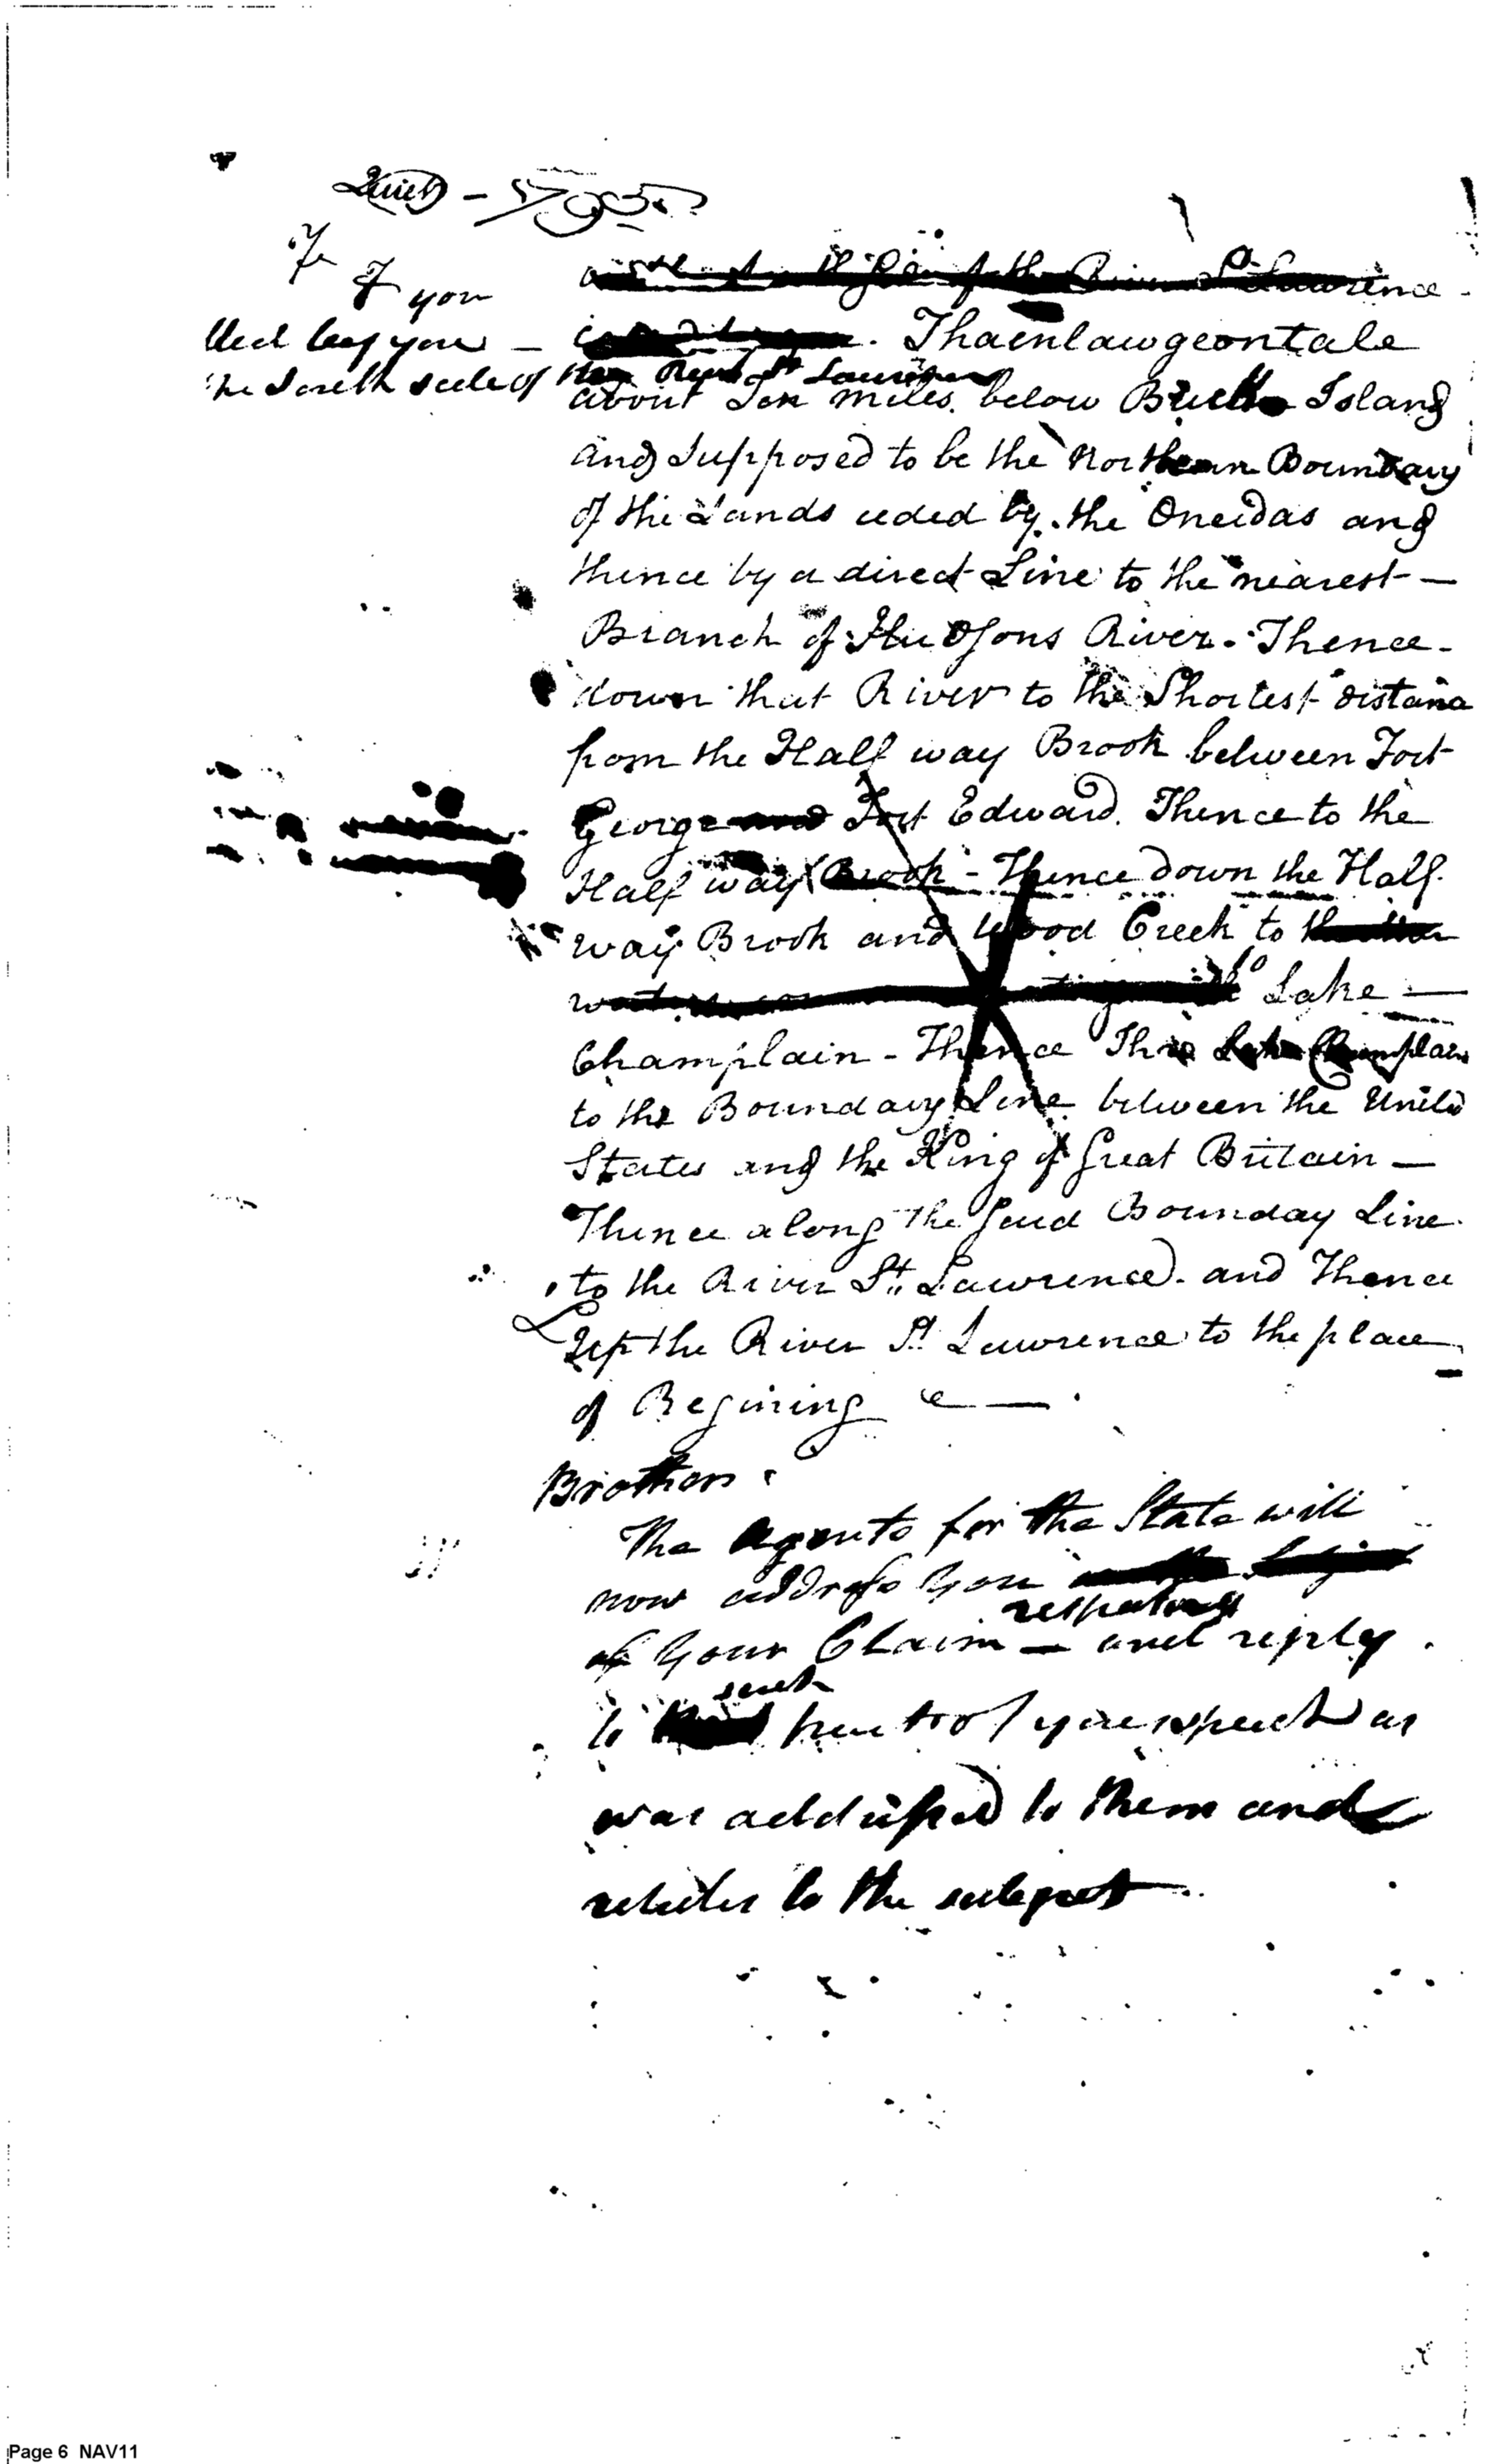 If you
by you —
the South side of the River St Lawrence
River St Lawrence
Thaenlawgeontale
about Ten miles below Buck Island
and Supposed to be the Northern Boundary
of the Lands ceded by the Oneidas and
thence by a direct Line to the nearest —
Branch of Hudsons River. Thence
down that River to the Shortest distance
from the Half way Brook between Fort
George and Fort Edward. Thence to the
Half way Brook - Thence down the Half
way Brook and Wood Creek to
to Lake —
Champlain - Thence Thro Lake Champlain
to the Boundary Line between the United
States and the King of Great Britain —
Thence along the said Bounday Line
to the River St. Lawrence. and Thence
up the River St Lawrence to the place
of Begining
Brothers
The Agents for the State will
now address you
respecting
your Claim — and reply
such
to part of your speech as
was addressed to them and
relates to the subject
Page 6 NAV11